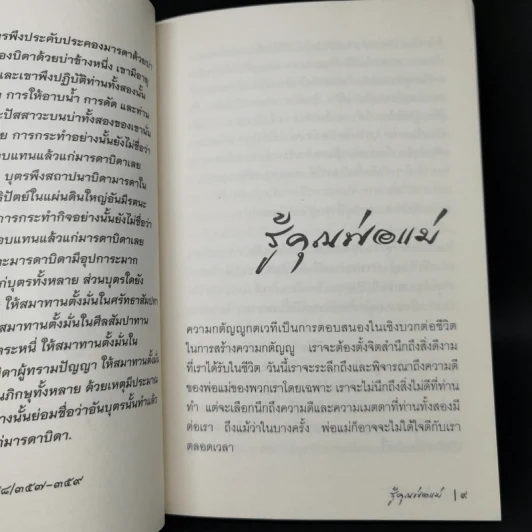 รพึงประคับประคองมารดาด้วยบ่า
องบิดาด้วยบ่าข้างหนึ่ง เขามีอายุ
และเขาพึงปฏิบัติท่านทั้งสองนั้น
การให้อาบน้ำ การดัด และท่าน
ะปัสสาวะบนบ่าทั้งสองของเขานั่น
ย การกระทำอย่างนั้นยังไม่ชื่อว่า
อบแทนแล้วแก่มารดาบิดาเลย
บุตรพึงสถาปนาบิดามารดาใน
ธิปัตย์ในแผ่นดินใหญ่อันมีรตนะ
การกระทำกิจอย่างนั้นยังไม่ชื่อว่า
อบแทนแล้วแก่มารดาบิดาเลย
ะมารดาบิดามีอุปการะมาก
ก่บุตรทั้งหลาย ส่วนบุตรใดยัง
ให้สมาทานตั้งมั่นในศรัทธาสัมปทา
ห้สมาทานตั้งมั่นในศีลสัมปทาน
ตระหนี่ ให้สมาทานตั้งมั่นใน
ดาผู้ทรามปัญญา ให้สมาทานตั้งมั่
นภิกษุทั้งหลาย ด้วยเหตุมีประมาณ
างนั้นย่อมชื่อว่าอันบุตรนั้นทำแล้ว
ก่มารดาบิดา.
๘/๓๕๗-๓๕๙
รู้คุณพ่อแม่
ความกตัญญูกตเวทีเป็นการตอบสนองในเชิงบวกต่อชีวิต
ในการสร้างความกตัญญู เราจะต้องตั้งจิตสำนึกถึงสิ่งดีงาม
ที่เราได้รับในชีวิต วันนี้เราจะระลึกถึงและพิจารณาถึงความดี
ของพ่อแม่ของพวกเราโดยเฉพาะ เราจะไม่นึกถึงสิ่งไม่ดีที่ท่าน
ทำ แต่จะเลือกนึกถึงความดีและความเมตตาที่ท่านทั้งสองมี
ต่อเรา ถึงแม้ว่าในบางครั้ง พ่อแม่ก็อาจจะไม่ได้ใจดีกับเรา
ตลอดเวลา
รู้คุณพ่อแม่ | ๙